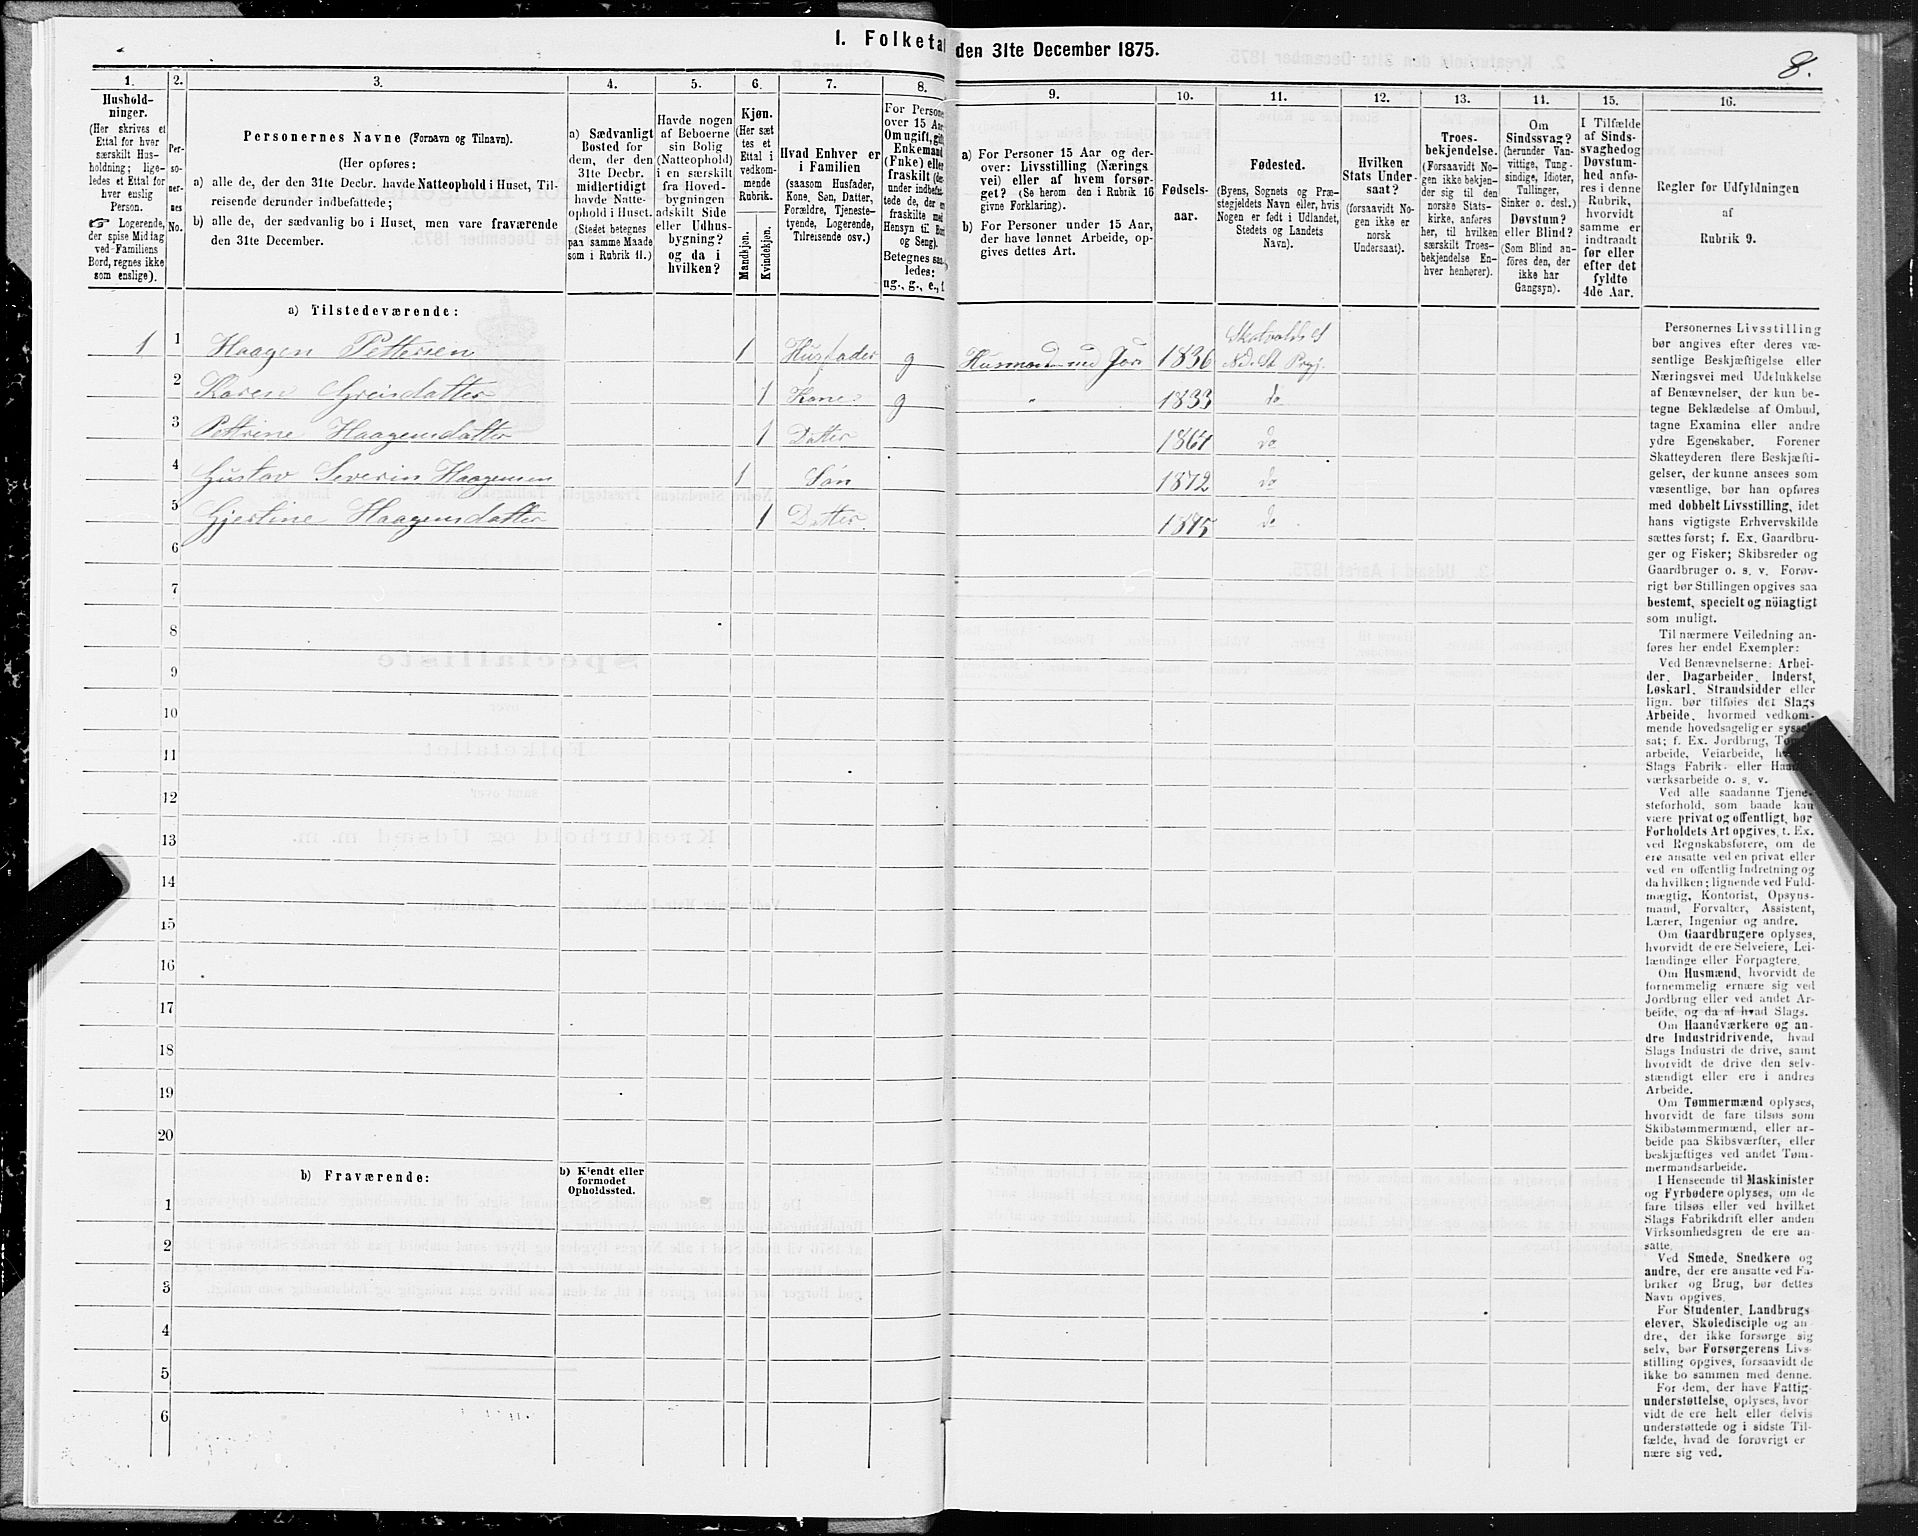 I. Folketal den 31te December 1875.
8.
1.
Hushold-
ninger.
(Her skrives et
Ettal for hver
særskilt Hus-
holdning; lige-
ledes et Ettal for
hver enslig
Person.
☞ Logerende,
der spise Middag
ved Familiens
Bord, regnes ikke
som enslige).
2.
Per-
so-
ner-
nes
No.
3.
Personernes Navne (Fornavn og Tilnavn).
(Her opføres:
a) alle de, der den 31te Decbr. havde Natteophold i Huset, Til-
reisende derunder indbefattede;
b) alle de, der sædvanlig bo i Huset, men vare fraværende
den 31te December.
4.
a) Sædvanligt
Bosted for
dem, der den
31te Decbr.
midlertidigt
havde Natte-
ophold i Huset.
(Stedet betegnes
paa samme Maade
som i Rubrik 11.)
5.
Havde nogen
af Beboerne
sin Bolig
(Natteophold)
i en særskilt
fra Hoved-
bygningen
adskilt Side
eller Udhus-
bygning?
og da i
hvilken?
6.
Kjøn.
(Her sæt
tes et
Ettal i
vedkom-
mende
Rubrik.
Mandkjøn.
Kvindekjøn.
7.
Hvad Enhver er
i Familien
(saasom Husfader,
Kone, Søn, Datter,
Forældre, Tjeneste-
tyende, Logerende,
Tilreisende osv.)
8.
For Persone
over 15 Aar
Om ugift, gift,
Enkemand
(Enke) eller
fraskilt (de
under indbefat-
tede de, der
fraskilte med
Hensyn til Bord
og Seng).
Betegnes saa-
ledes:
ug., g., e., f.
9.
a) For Personer 15 Aar og der-
over: Livsstilling (Nærings
vei) eller af hvem forsør-
get? (Se herom den i Rubrik 16
givne Forklaring).
b) For Personer under 15 Aar,
der have lønnet Arbeide, op-
gives dettes Art.
10.
Fødsels-
aar.
11.
Fødested.
(Byens, Sognets og Præ-
stegjeldets Navn eller, hvis
Nogen er født i Udlandet,
Stedets og Landets
Navn).
12.
Hvilken
Stats Under
saat?
(forsaavidt No-
gen ikke er
norsk
Undersaat).
13.
Troes-
bekjendelse.
(Forsaavidt No-
gen ikke bekjen-
der sig til den
norske Stats-
kirke, anføres
her, til hvilken
særskilt Troes-
bekjendelse En-
hver henhører).
14.
Om
Sindssvag?
(herunder Van-
vittige, Tung-
sindige, Idioter,
Tullinger,
Sinker o. desl.)
Døvstum?
eller Blind?
(Som Blind an-
føres den, der
ikke har
Gangsyn).
15.
I Tilfælde
af Sinds-
svaghed og
Døvstum-
hed anfø-
res i denne
Rubrik,
hvorvidt
samme er
indtraadt
før eller
efter det
fyldte
4de Aar.
16.
Regler for Udfyldningen
af
Rubrik 9.
a) Tilstedeværende:
1 1 Haagen Pettersen 1 Husfader g Husmand med Jor 1836 Skatvolds S
Nd. St Prgj.
2 Karen Greisdatter 1 Kone g " 1833 do
3 Pettrine Haagensdatter 1 Datter 1864 do
4 Gustav Severin Haagensen 1 Søn 1872 do
5 Gjertine Haagensdatter 1 Datter 1875 do
6
7
8
9
10
11
12
13
14
15
16
17
18
19
20
b) Fraværende:
b) Kjendt eller
formodet
Opholdssted.
1
2
3
4
5
6
Personernes Livsstilling
bør angives efter deres væ-
sentlige Beskjæftigelse eller
Næringsvei med Udelukkelse
af Benævnelser, der kun be-
tegne Beklædelse af Ombud,
tagne Examina eller andre
ydre Egenskaber. Forener
Skatteyderen flere Beskjæfti-
gelser, der kunne ansees som
væsentlige, bør han opføres
med dobbelt Livsstilling, idet
hans vigtigste Erhvervskilde
sættes først; f. Ex. Gaardbru-
ger og Fisker; Skibsreder og
Gaardbruger o. s. v. Forøv-
rigt bør Stillingen opgives saa
bestemt, specielt og nøiagtigt
som muligt.
Til nærmere Veiledning an-
føres her endel Exempler:
Ved Benævnelserne: Arbei-
der, Dagarbeider, Inderst,
Løskarl, Strandsidder eller
lign. bør tilføies det Slags
Arbeide, hvormed vedkom-
mende hovedsagelig er syssel
sat; f. Ex. Jordbrug, Tøm
arbeide, Veiarbeide, h
Slags Fabrik- eller Haand
værksarbeide o. s. v.
Ved alle saadanne Tjene-
steforhold, som baade kan
være privat og offentligt, bør
Forholdets Art opgives, t. Ex.
ved Regnskabsførere, om de
ere ansatte ved en privat eller
ved en offentlig Indretning og
da hvilken; lignende ved Fuld-
mægtig, Kontorist, Opsyns-
mand, Forvalter, Assistent,
Lærer, Ingeniør og andre.
Om Gaardbrugere oplyses,
hvorvidt de ere Selveiere, Lei-
lændinge eller Forpagtere.
Om Husmænd, hvorvidt de
fornemmelig ernære sig ved
Jordbrug eller ved andet Ar-
beide, og da af hvad Slags.
Om Haandværkere og an-
dre Industridrivende, hvad
Slags Industri de drive, samt
hvorvidt de drive den selv-
stændigt eller ere i andres
Arbeide.
Om Tømmermænd oplyses,
hvorvidt de fare tilsøs som
Skibstømmermænd, eller ar-
beide paa Skibsværfter, eller
beskjæftiges ved andet Tøm-
mermandsarbeide.
I Henseende til Maskinister
og Fyrbødere oplyses, om de
fare tilsøs eller ved hvilket
Slags Fabrikdrift eller anden
Virksomhedsgren de ere an-
satte.
Ved Smede, Snedkere og
andre, der ere ansatte ved Fa-
briker og Brug, bør dettes
Navn opgives.
For Studenter, Landbrugs
elever, Skoledisciple og an
dre, der ikke forsørge sig
selv, bør Forsørgerens Livs-
stilling opgives, forsaavidt de
ikke bo sammen med denne.
For dem, der have Fattig-
understøttelse, oplyses, hvor
vidt de ere helt eller delvis
understøttede og i sidste Til-
fælde, hvad de forøvrigt er
nære sig ved.